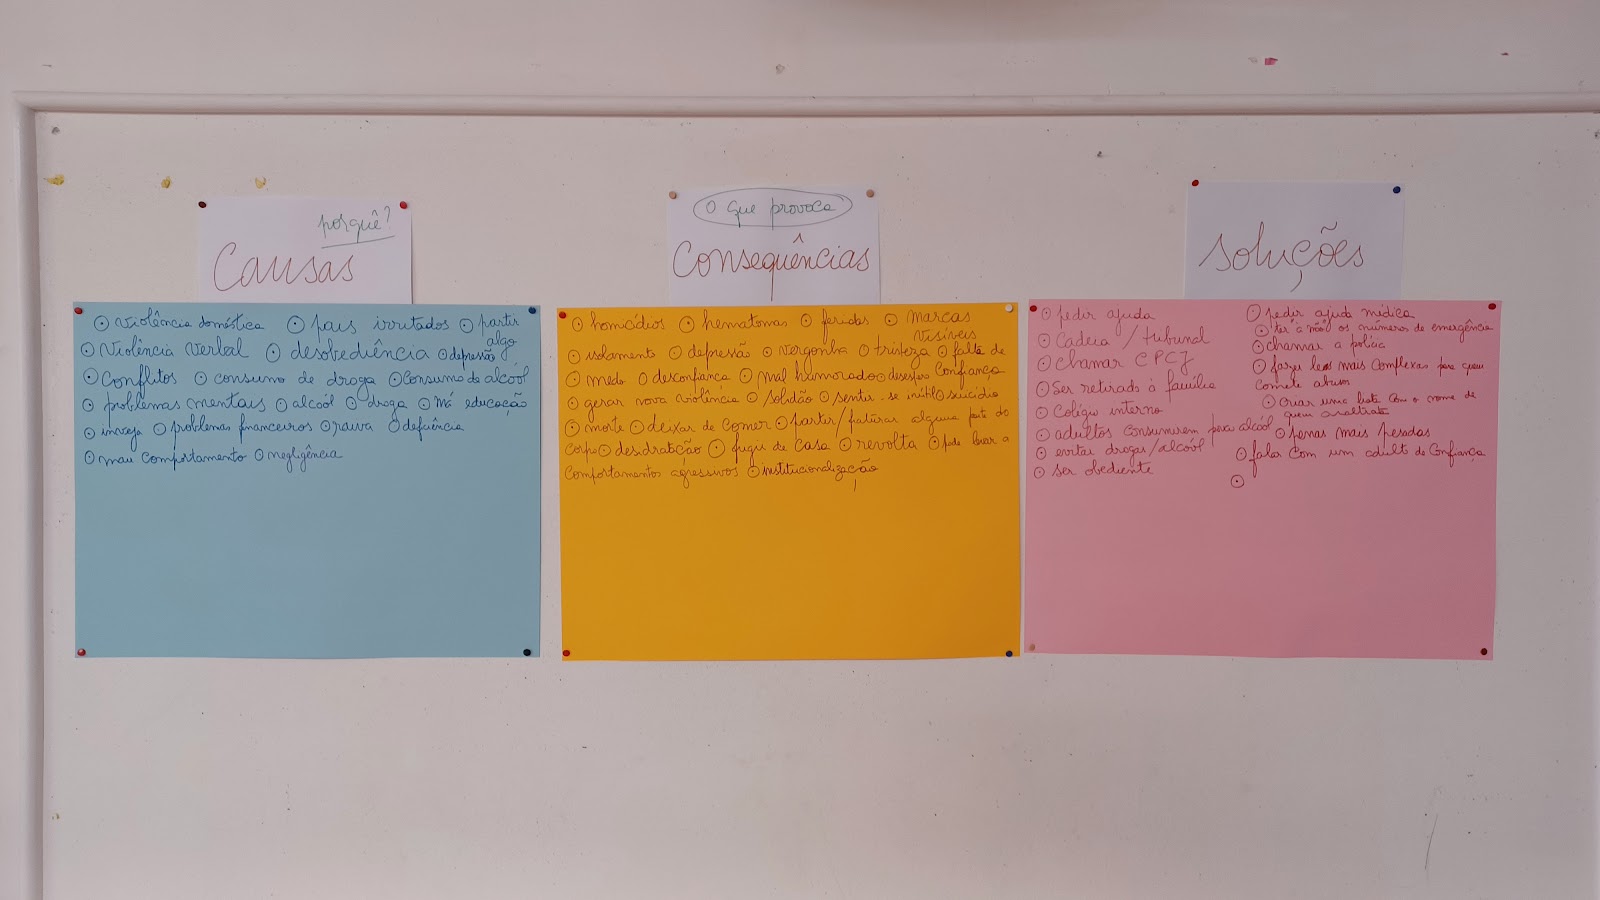 porquê?
Causas
⊙ violência doméstica ⊙ pais irritados ⊙ partir
algo
⊙ Violência Verbal ⊙ desobediência ⊙ depressão
⊙ Conflitos ⊙ consumo de droga ⊙ Consumo de alcoól
⊙ problemas mentais ⊙ alcoól ⊙ droga ⊙ má educação
⊙ inveja ⊙ problemas financeiros ⊙ raiva ⊙ deficiência
⊙ mau comportamento ⊙ negligência
O que provoca
Consequências
⊙ homicídios ⊙ hematomas ⊙ feridas ⊙ marcas
visíveis
⊙ isolamento ⊙ depressão ⊙ vergonha ⊙ tristeza ⊙ falta de
⊙ medo ⊙ desconfiança ⊙ mal humorado ⊙ desespero Confiança
⊙ gerar nova violência ⊙ solidão ⊙ sentir-se inútil ⊙ suicídio
⊙ morte ⊙ deixar de comer ⊙ partir/fraturar alguma parte do
corpo ⊙ desidratação ⊙ fugir de casa ⊙ revolta ⊙ pode levar a
comportamentos agressivos ⊙ institucionalização
Soluções
⊙ pedir ajuda
⊙ Cadeia / tribunal
⊙ chamar CPCJ
⊙ Ser retirado à família
⊙ Colégio interno
⊙ adultos consumirem pouco alcoól
⊙ evitar drogas/alcoól
⊙ ser obediente
⊙ pedir ajuda médica
⊙ ter à mão os números de emergência
⊙ chamar a polícia
⊙ fazer leis mais complexas para quem
comete abusos
⊙ criar uma lista com o nome de
quem maltrata
⊙ penas mais pesadas
⊙ falar com um adulto de Confiança
⊙